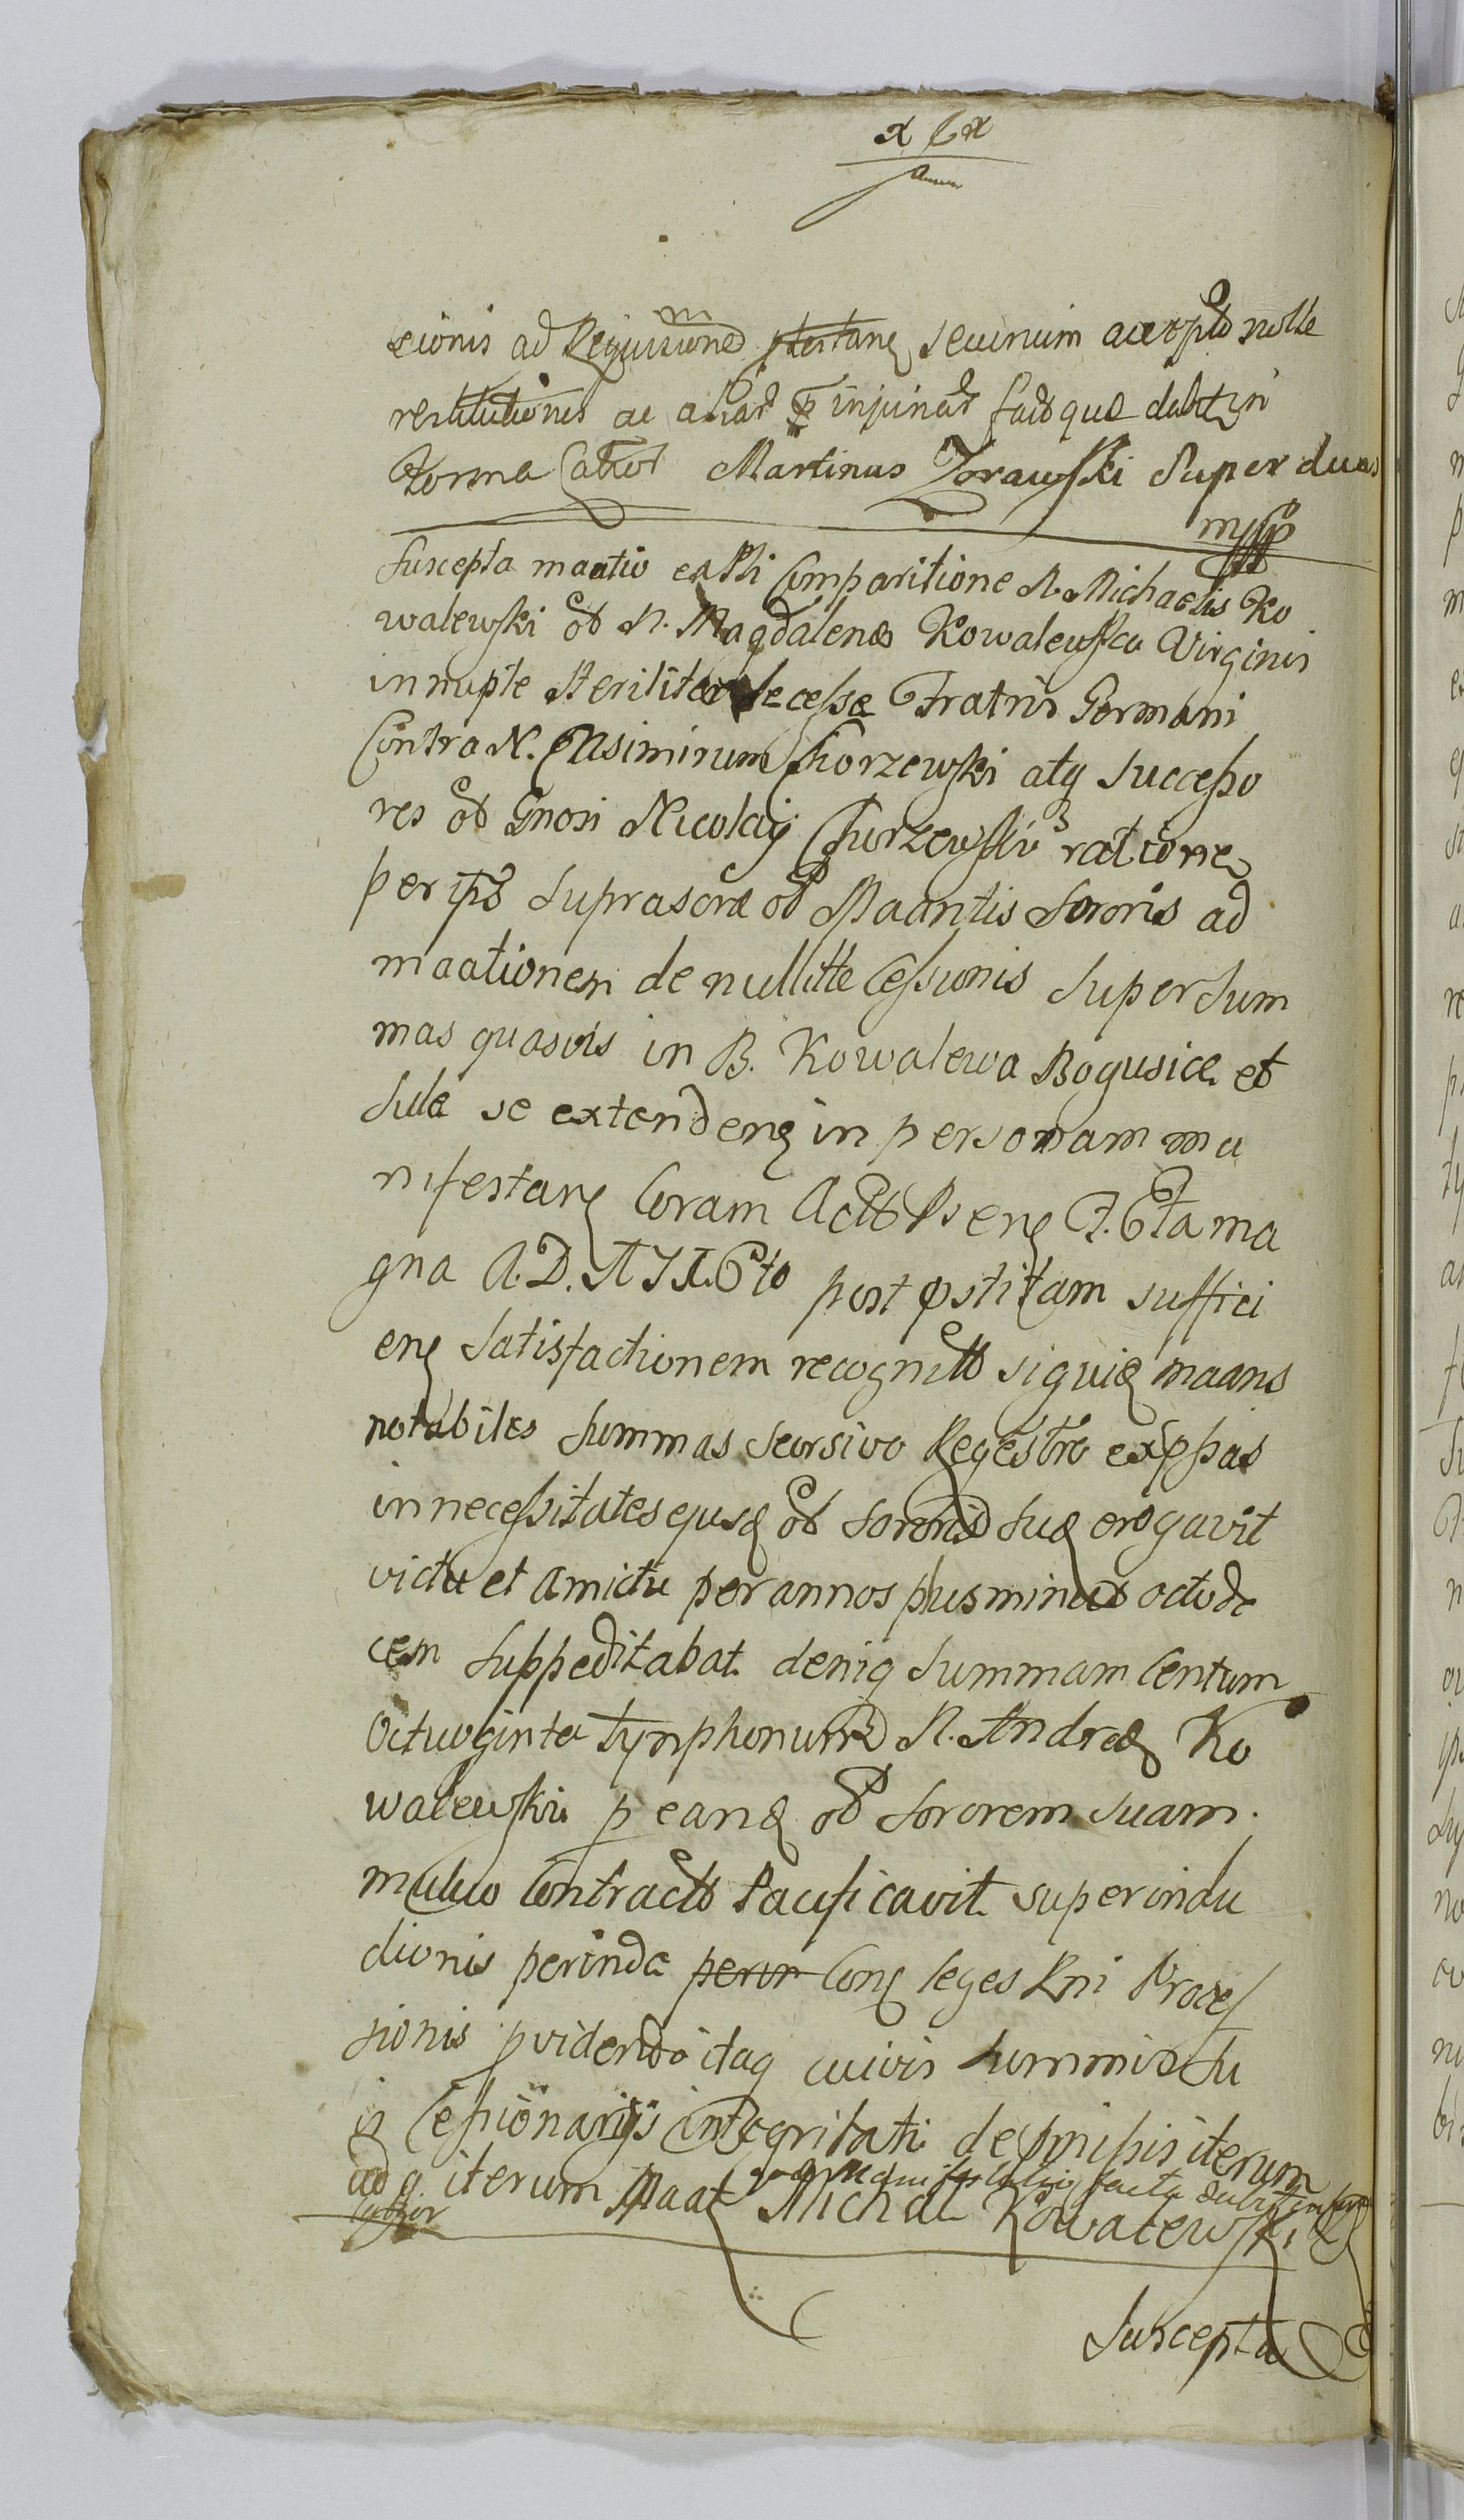 cionis ad Requisitione securium accepto nolle
restitutionis ac alias injurias facto que dabt in
Forma Cator Martinus Zorawski Super duas
mpp
Suscepta maatio ex Psli Comparitione N. Michaelis Ko
walewski od N. Magdalenæ Kowalewska Virginis
innuptæ steriliter decessæ Fratris Germani
Contra N. Casimirum Chorzewski atq Successo
res od Gnosi Nicolaij Churzewski ratione
per ipś Suprascræ od Maantis Sororis ad
maationem de nullitte Cessionis Super Sum
mas quasvis in B. Kowalewa Bogusice et
Sula se extendenȩ in personam ma
nifestanȩ Coram Actt Psenȩ F. Eta ma
gna A. D. post pstitam suffici
enȩ Satisfactionem recognitt siquiȩ maans
notabiles Summas Seorsivo Regestro expssas
in necessitates ejusȩ od Sororis Suæ erogavit
victu et amictu per annos plus minus octode
cem Suppeditabat deniq Summam Centum
Octuoginta Tynphonum N. Andreæ Ko
walewski p eanȩ od Sororem Suam
mutuo Contractt Pacificavit superindu
ctionis perinde perin Conȩ leges Rni Proces
sionis pvidendo itaq cuivis Summis Su
is Cessionarijs integritati de pmissis iterum
adq iterum Maat Manifestatio facta dabit in forma
Cator Michał Kowalewski
Suscepta